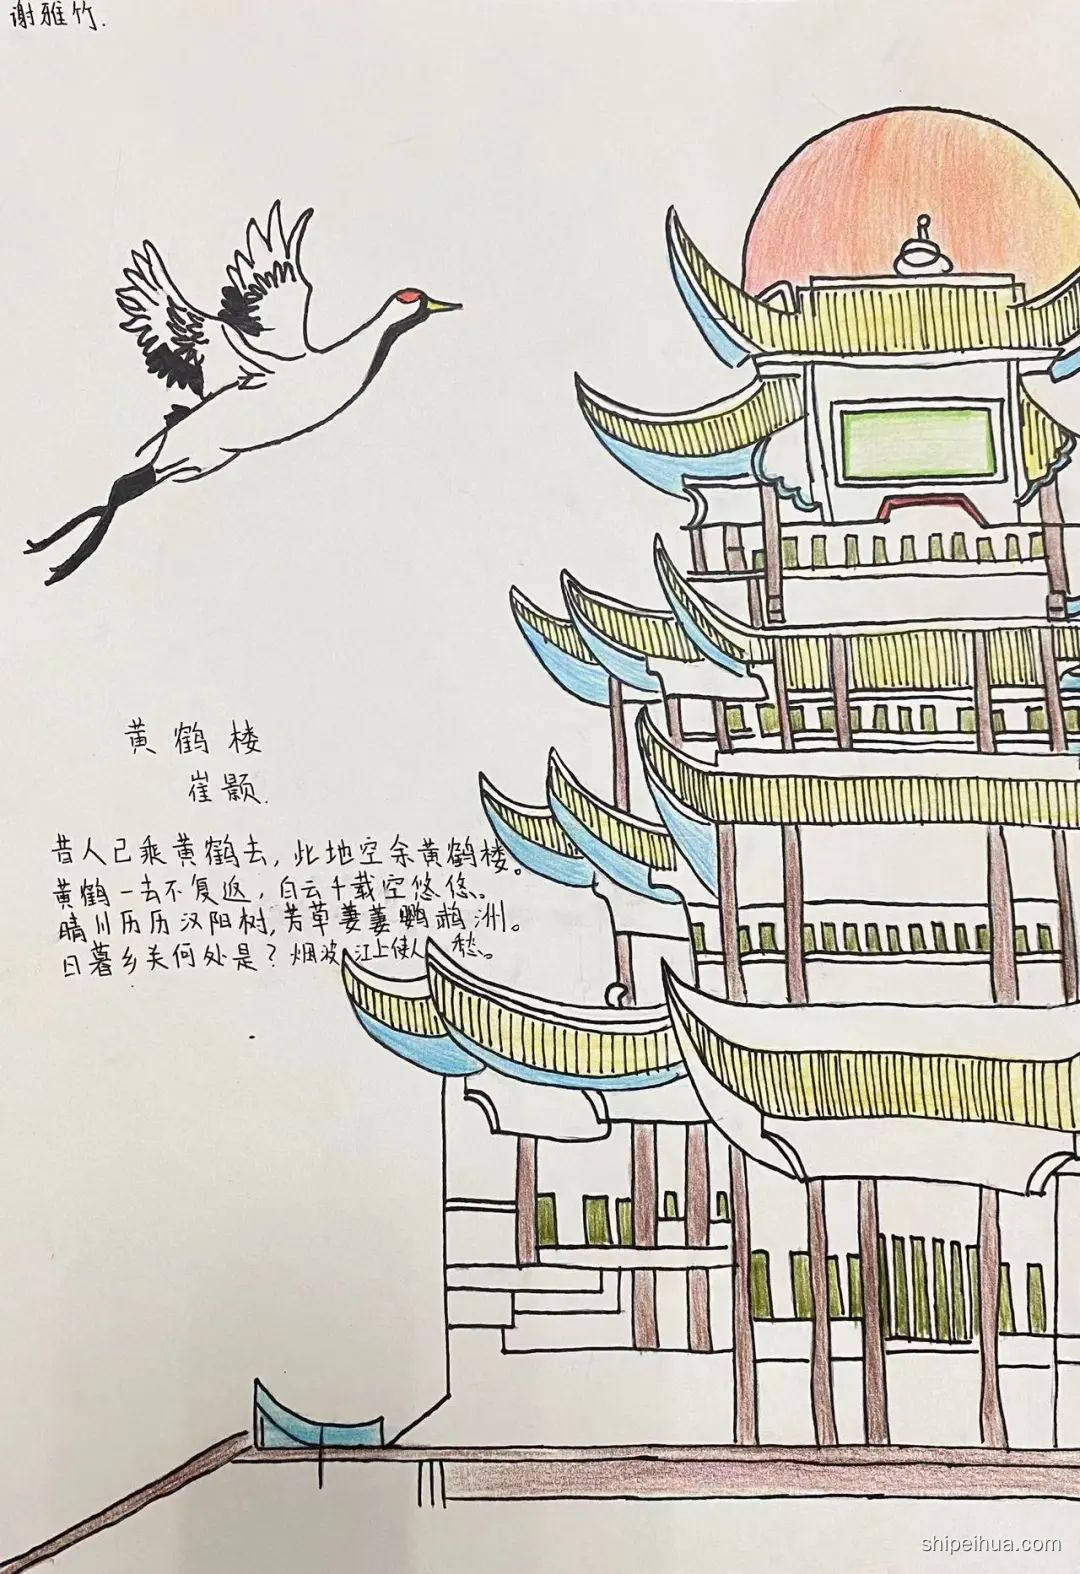 谢雅竹.
黄鹤楼
崔颢.
昔人已乘黄鹤去,此地空余黄鹤楼。
黄鹤一去不复返,白云千载空悠悠。
晴川历历汉阳树,芳草萋萋鹦鹉洲。
日暮乡关何处是?烟波江上使人愁。
shipeihua.com